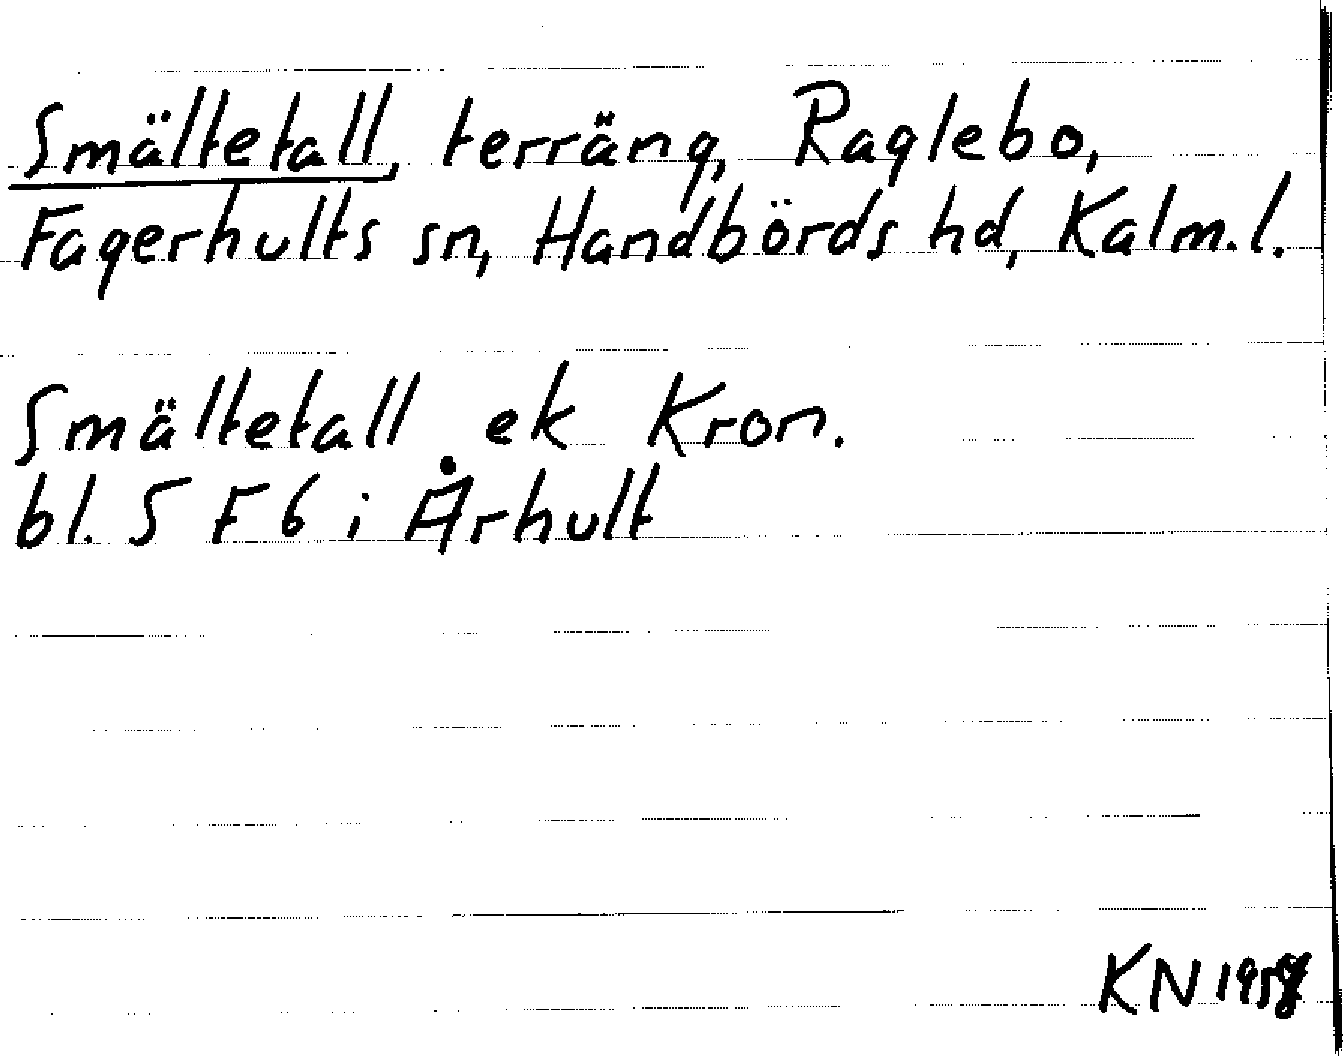 Smältetall, terräng, Raglebo,
Fagerhults sn, Handbörds hd, Kalm.l.
Smältetall ek Kron.
bl. 5 F 6 i Århult
KN 1958